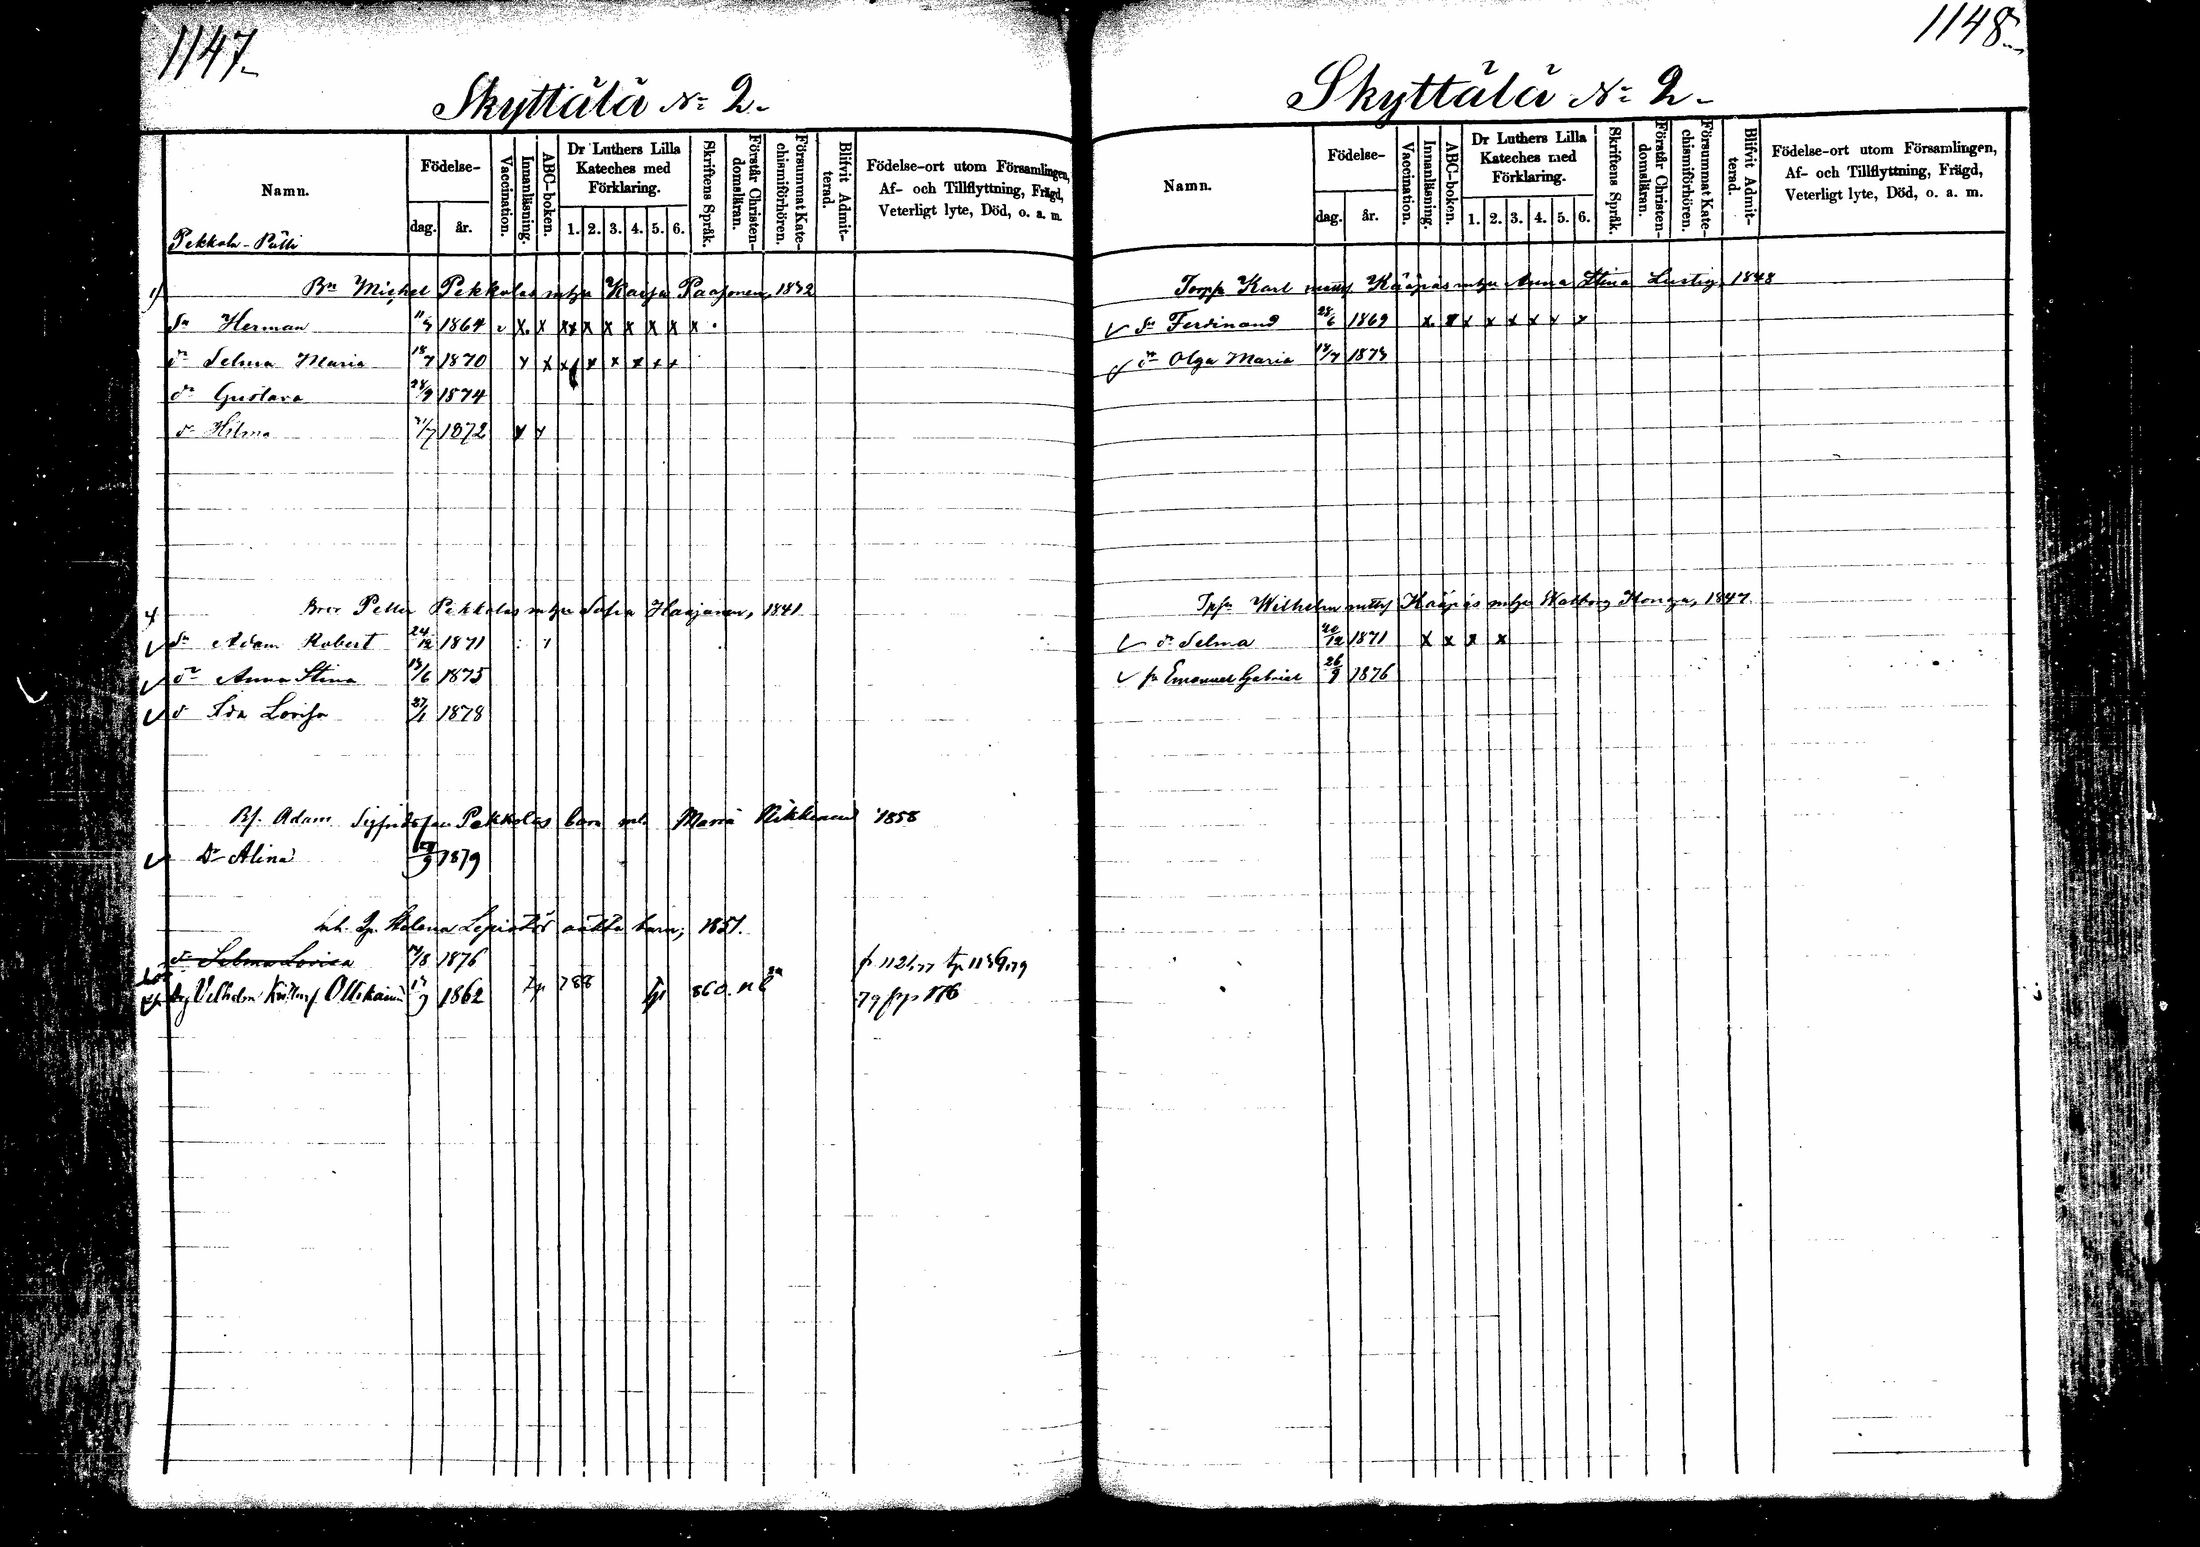 1147
Skyttälä No 2.
Namn.
Födelse-
dag.
år.
Vaccination.
Innanläsning.
ABC-boken.
Dr Luthers Lilla Kateches med Förklaring.
1. 2. 3. 4. 5. 6.
Skriftens Språk.
Förstår Christendomsläran.
Försummat Katechismiförhören.
Blifvit Admitterad.
Födelse-ort utom Församlingen,
Af- och Tillflyttning, Frägd,
Veterligt lyte, Död, o. a. m.
Pekkola-Pulli
1) Bn Michel Pekkolas mhu Kaisa Paajanen, 1832
Sn Herman 1864 x x x x x x x x x
dr Selma Maria 18/7 1870 x x x x x x x x
dr Gustava 28/9 1874
dr Hilma 1872 x x
Bror Petter Pekkolas mhu Sofia Haajanen, 1841
Sn Adam Robert 24/12 1871
dr Anna Stina 13/6 1875
d Ida Lovisa 27/1 1878
Bs. Adam Sigfridsson Pekkolas barn Maria 1858
Dr Alina 1879
Helena oäkta barn, 1851.
dr Selma Lovisa 1876
Vilhelm 1862 788 860.
1148
Skyttälä No 2.
Namn.
Födelse-
dag.
år.
Vaccination.
Innanläsning.
ABC-boken.
Dr Luthers Lilla Kateches med Förklaring.
1. 2. 3. 4. 5. 6.
Skriftens Språk.
Förstår Christendomsläran.
Försummat Katechismiförhören.
Blifvit Admitterad.
Födelse-ort utom Församlingen,
Af- och Tillflyttning, Frägd,
Veterligt lyte, Död, o. a. m.
Torpp Karl Kääpäs mhu Anna Stina Lustig, 1848
Sn Ferdinand 28/6 1869 x x x x x x x x
dr Olga Maria 1873
Wilhelm Kääpäs mhu Walborg 1847
dr Selma 1871 x x x x
Emanuel Gabriel 26/9 1876